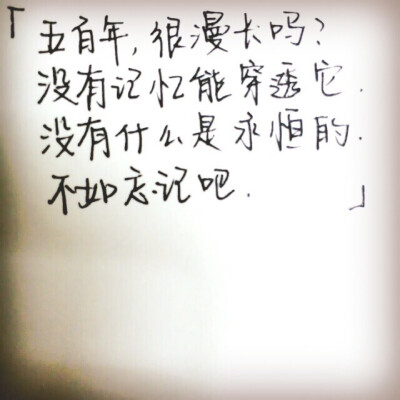 「五百年,很漫长吗?
没有记忆能穿透它.
没有什么是永恒的.
不如忘记吧. 」